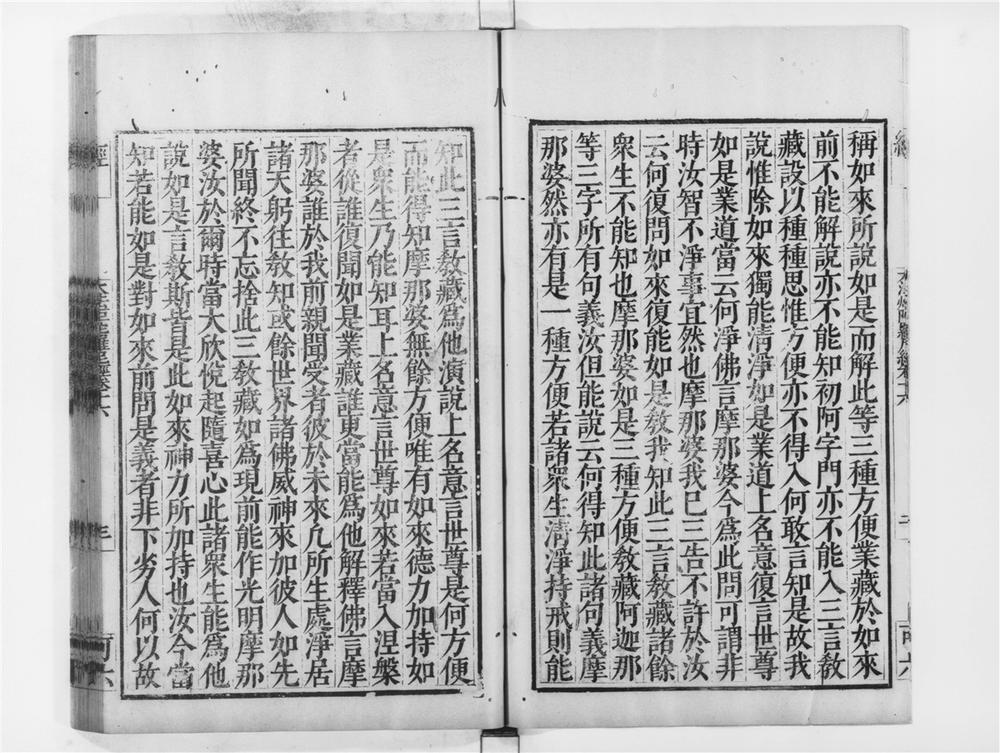 稱如來所說如是而解此等三種方便業藏於如來
前不能解說亦不能知初阿字門亦不能入三言敎
藏設以種種思惟方便亦不得入何敢言知是故我
說惟除如來獨能清淨如是業道上名意復言世尊
如是業道當云何淨佛言摩那婆今爲此問可謂非
時汝智不淨事宜然也摩那婆我已三告不許於汝
云何復問如來復能如是敎我知此三言敎藏諸餘
衆生不能知也摩那婆如是三種方便敎藏阿迦那
等三字所有句義汝但能說云何得知此諸句義摩
那婆然亦有是一種方便若諸衆生清淨持戒則能
知此三言敎藏爲他演說上名意言世尊是何方便
而能得知摩那婆無餘方便唯有如來德力加持如
是衆生乃能知耳上名意言世尊如來若當入涅槃
者從誰復聞如是業藏誰更當能爲他解釋佛言摩
那婆誰於我前親聞受者彼於未來凡所生處淨居
諸天躬往敎知或餘世界諸佛威神來加彼人如先
所聞終不忘捨此三敎藏如爲現前能作光明摩那
婆汝於爾時當大欣悅起隨喜心此諸衆生能爲他
說如是言敎斯皆是此如來神力所加持也汝今當
知若能如是對如來前問是義者非下劣人何以故